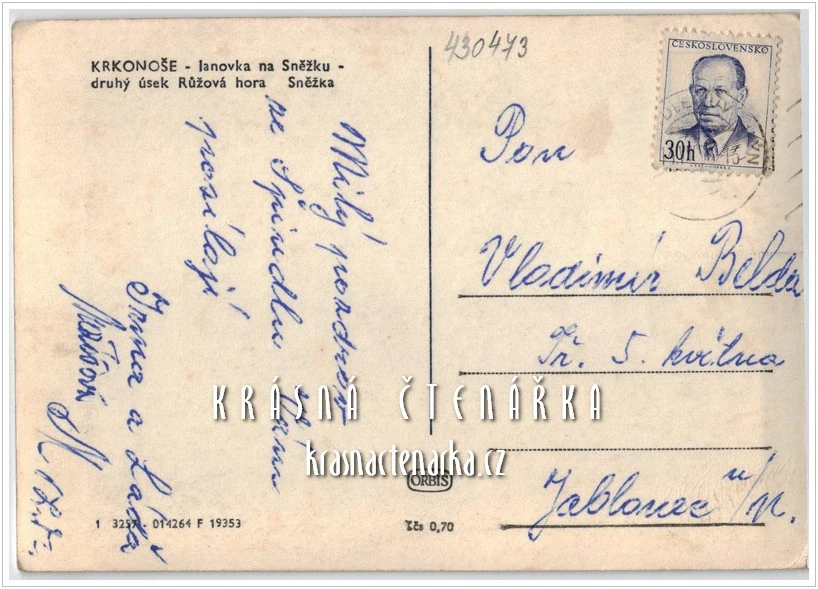 KRKONOŠE - lanovka na Sněžku -
druhý úsek Růžová hora Sněžka
430473
ČESKOSLOVENSKO
30h
Milý pozdrav
ze Špindlu Vám
posílají
Irma a Láďa
Pan
Vladimír Belda
Tř. 5. května
Jablonec n/N.
KRÁSNÁ ČTENÁŘKA
krasnactenarka.cz
ORBIS
1 3257 - 014264 F 19353
Kčs 0,70